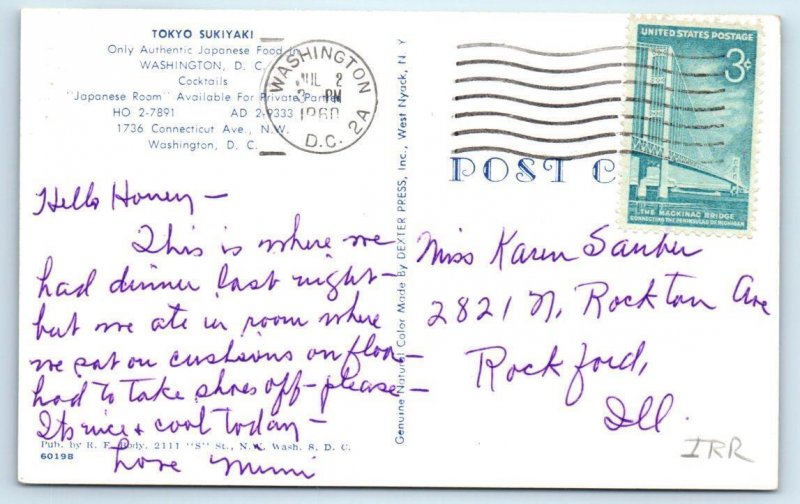 TOKYO SUKIYAKI
Only Authentic Japanese Food in
WASHINGTON, D. C.
Cocktails
"Japanese Room" Available For Private Parties
HO 2-7891 AD 2-9333
1736 Connecticut Ave., N.W.
Washington, D. C.
WASHINGTON
JUL 2
PM
1960
D.C. 2A
UNITED STATES POSTAGE
3¢
THE MACKINAC BRIDGE
CONNECTING THE PENINSULAS OF MICHIGAN
POST C
Hello Honey –
This is where we
had dinner last night –
but we ate in room where
we sat on cushions on floor –
had to take shoes off – please –
Its nice & cool today –
Love Mimi
Pub. by R. E. Body, 2111 "S" St., N.W. Wash. 8, D. C.
60198
Genuine Natural Color Made By DEXTER PRESS, Inc., West Nyack, N. Y.
Miss Karen Sauber
2821 N. Rockton Ave
Rockford,
Ill.
IRR